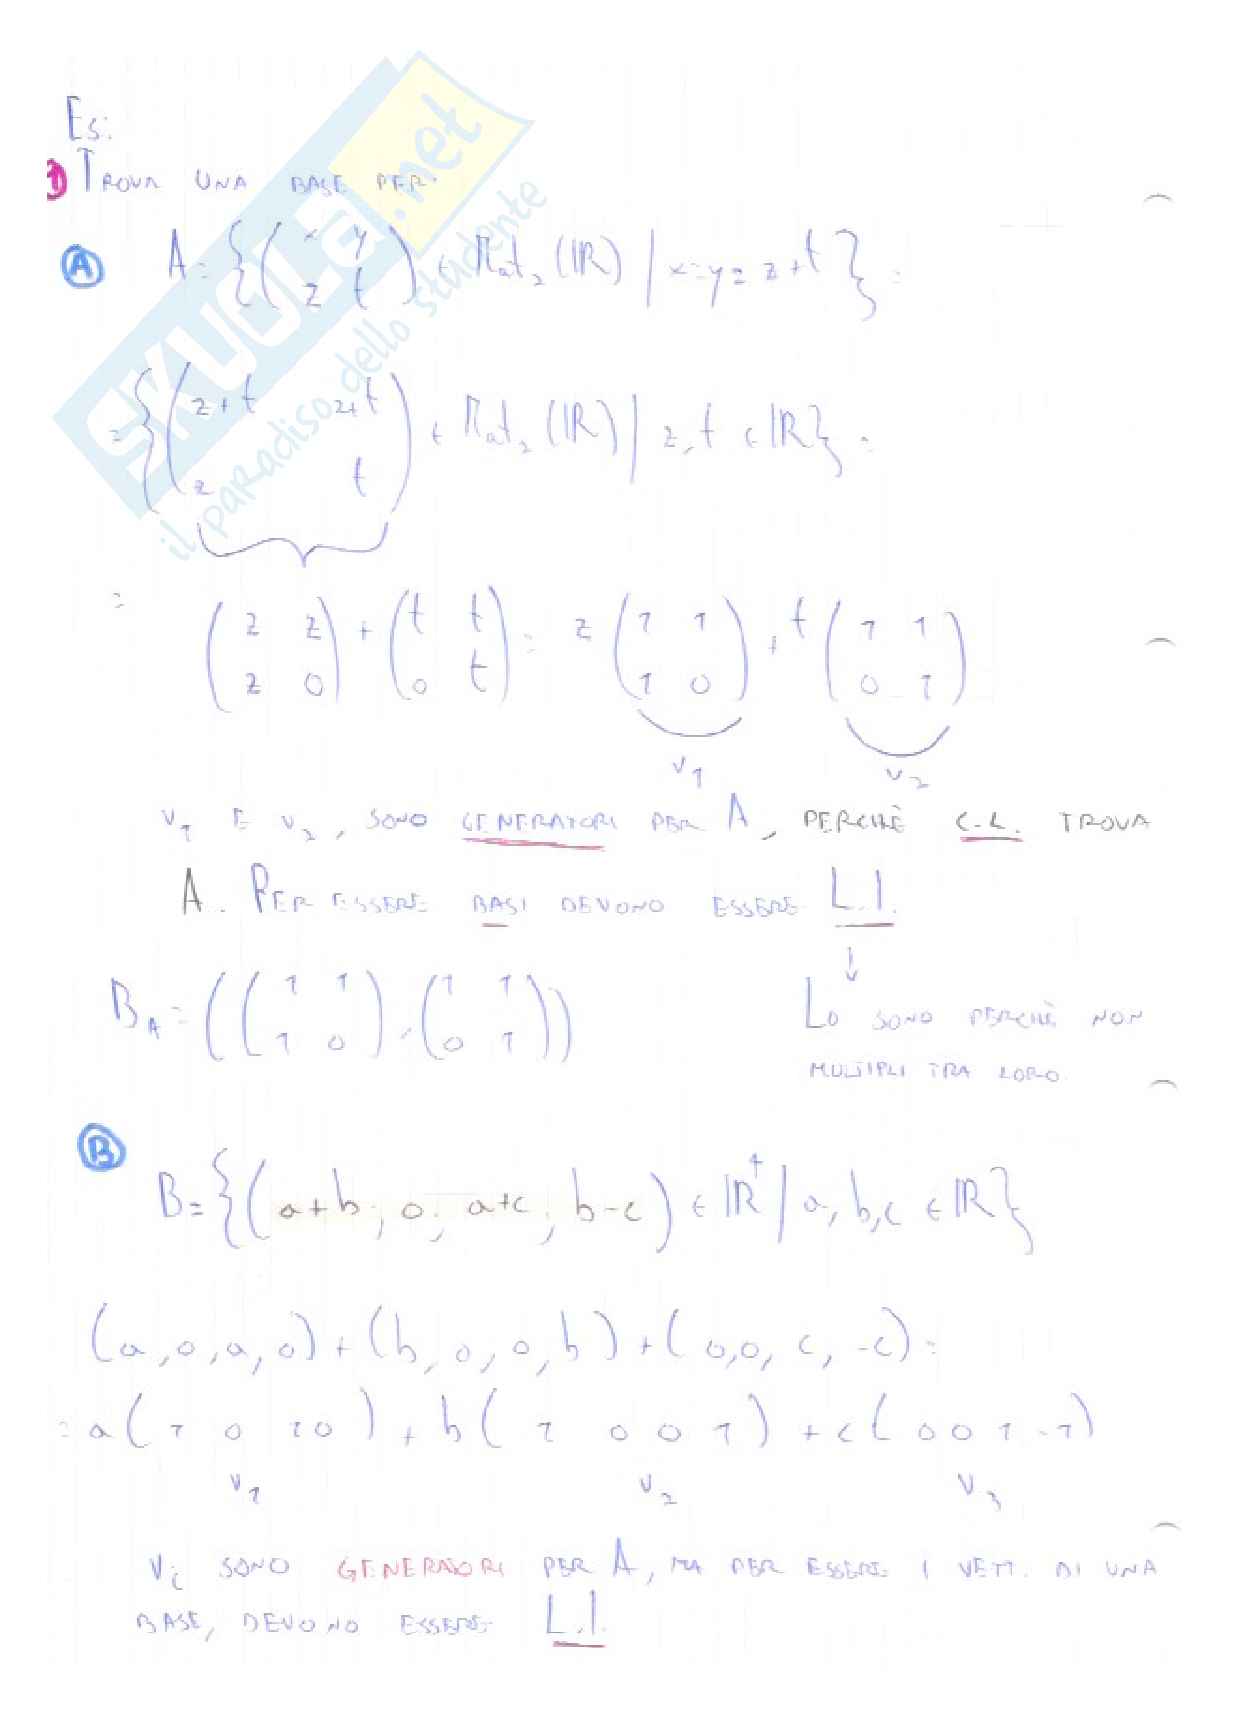 Es:
1 TROVA UNA BASE PER:
A A = {(x y
z t) ∈ Mat₂ (ℝ) | x=y=z+t} =
= {(z+t z+t
z t) ∈ Mat₂ (ℝ) | z,t ∈ ℝ} =
= (z z
z 0) + (t t
0 t) = z (1 1
1 0) + t (1 1
0 1)
v₁ v₂
v₁ E v₂, SONO GENERATORI PER A, PERCHÈ C.L. TROVA
A. PER ESSERE BASI DEVONO ESSERE L.I.
↓
B_A = ((1 1
1 0), (1 1
0 1))
LO SONO PERCHÈ NON
MULTIPLI TRA LORO.
B B = {(a+b; 0; a+c; b-c) ∈ ℝ⁴ | a,b,c ∈ ℝ}
(a,0,a,0) + (b,0,0,b) + (0,0,c,-c) =
= a(1 0 1 0) + b(1 0 0 1) + c(0 0 1 -1)
v₁ v₂ v₃
Vi SONO GENERATORI PER A, MA PER ESSERE I VETT. DI UNA
BASE, DEVONO ESSERE L.I.
SKUOLA.net
il paradiso dello studente